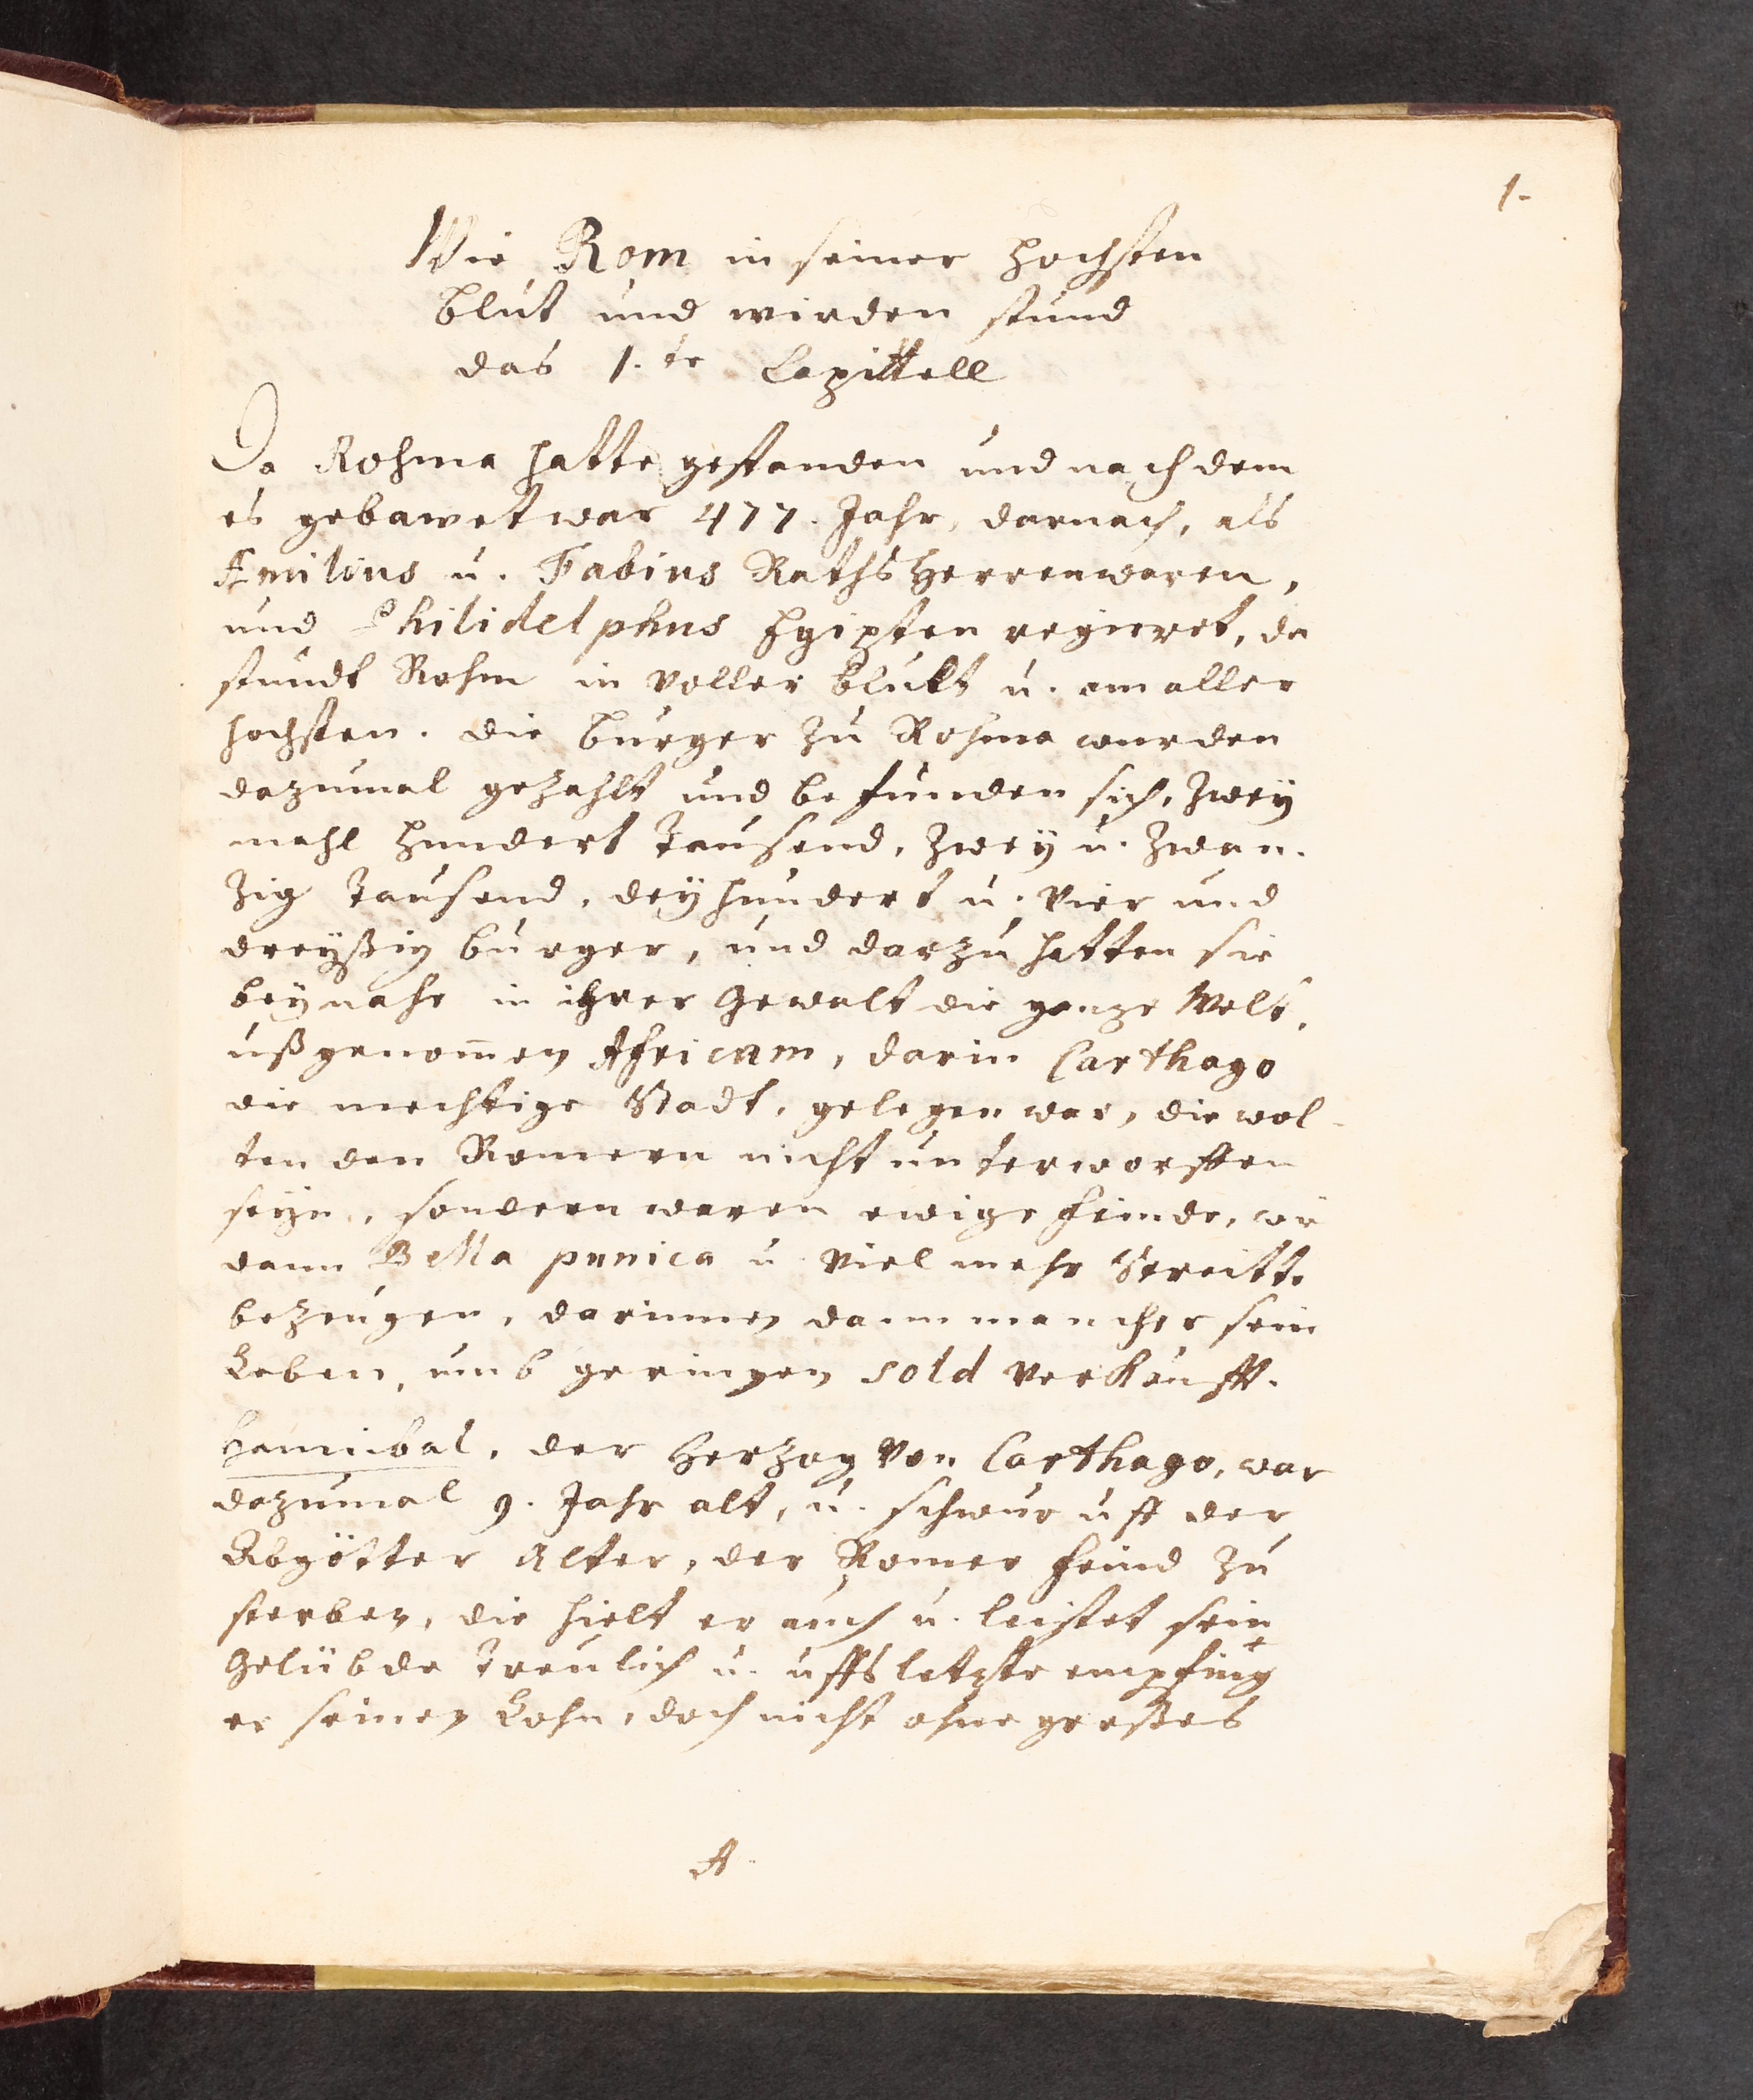 1.
Wie Rom in seiner hochsten
blut und wirden stund
das 1.te Capittell
Da Rohma hatte gestanden und nach dem
es gebawet war 477. Jahr, darnach, als
Æmilius u. Fabius Rathsherren waren,
und Philidelphus Egipten regieret, da
stundt Rohm in voller blutt u. am aller
hochsten. die burger zu Rohma wurden
dazumal gezahlt und befunden sich, zwey
mahl hundert tausend, zwey u. zwan.
zig tausend, dey hundert u. vier und
dreyßig burger, und darzu hatten sie
beynahe in ihrer gewalt die ganze Welt,
ußgenom̄en Africam, darin Carthago
die mechtige Stadt, gelegen war, die wol-
ten den Romern nicht unterworffen
seyn, sondern waren ewige feinde, wie
dann Bella punica u. viel mehr Streitte
bezeugen, darinnen dann mancher sein
Leben, umb geringen sold verkaufft.
Hannibal, der Herzog von Carthago, war
dazumal 9. Jahr alt, u. schwur uff der
Abgötter Alter, der Romer feind zu
sterben, die hielt er auch u. leistet sein
Gelübde treulich u. uffs letzte empfing
er seinen Lohn, doch nicht ohne großes
A.